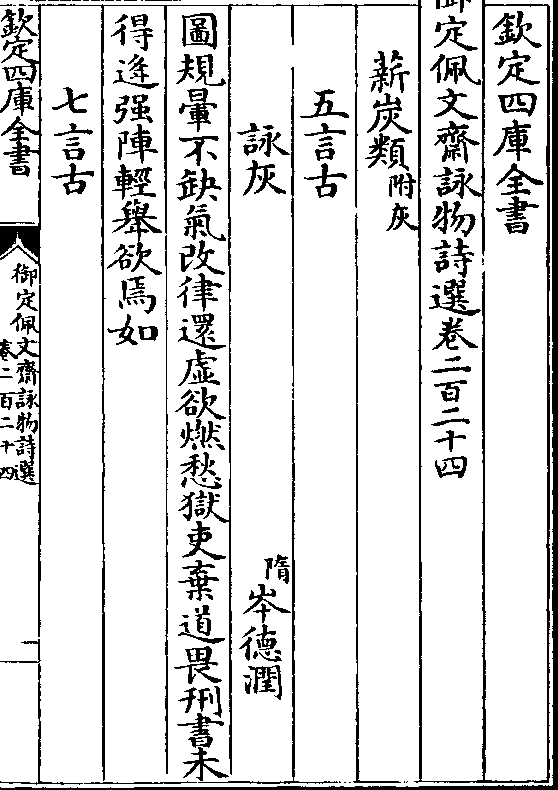 欽定四庫全書
御定佩文齋詠物詩選卷二百二十四
薪炭類附灰
五言古
詠灰 隋岑德潤
圖規暈不缺氣改律還虛欲燃愁獄吏棄道畏刑書未
得逄强陣輕舉欲焉如
七言古
欽定四庫全書
御定佩文齋詠物詩選
卷二百二十四
一